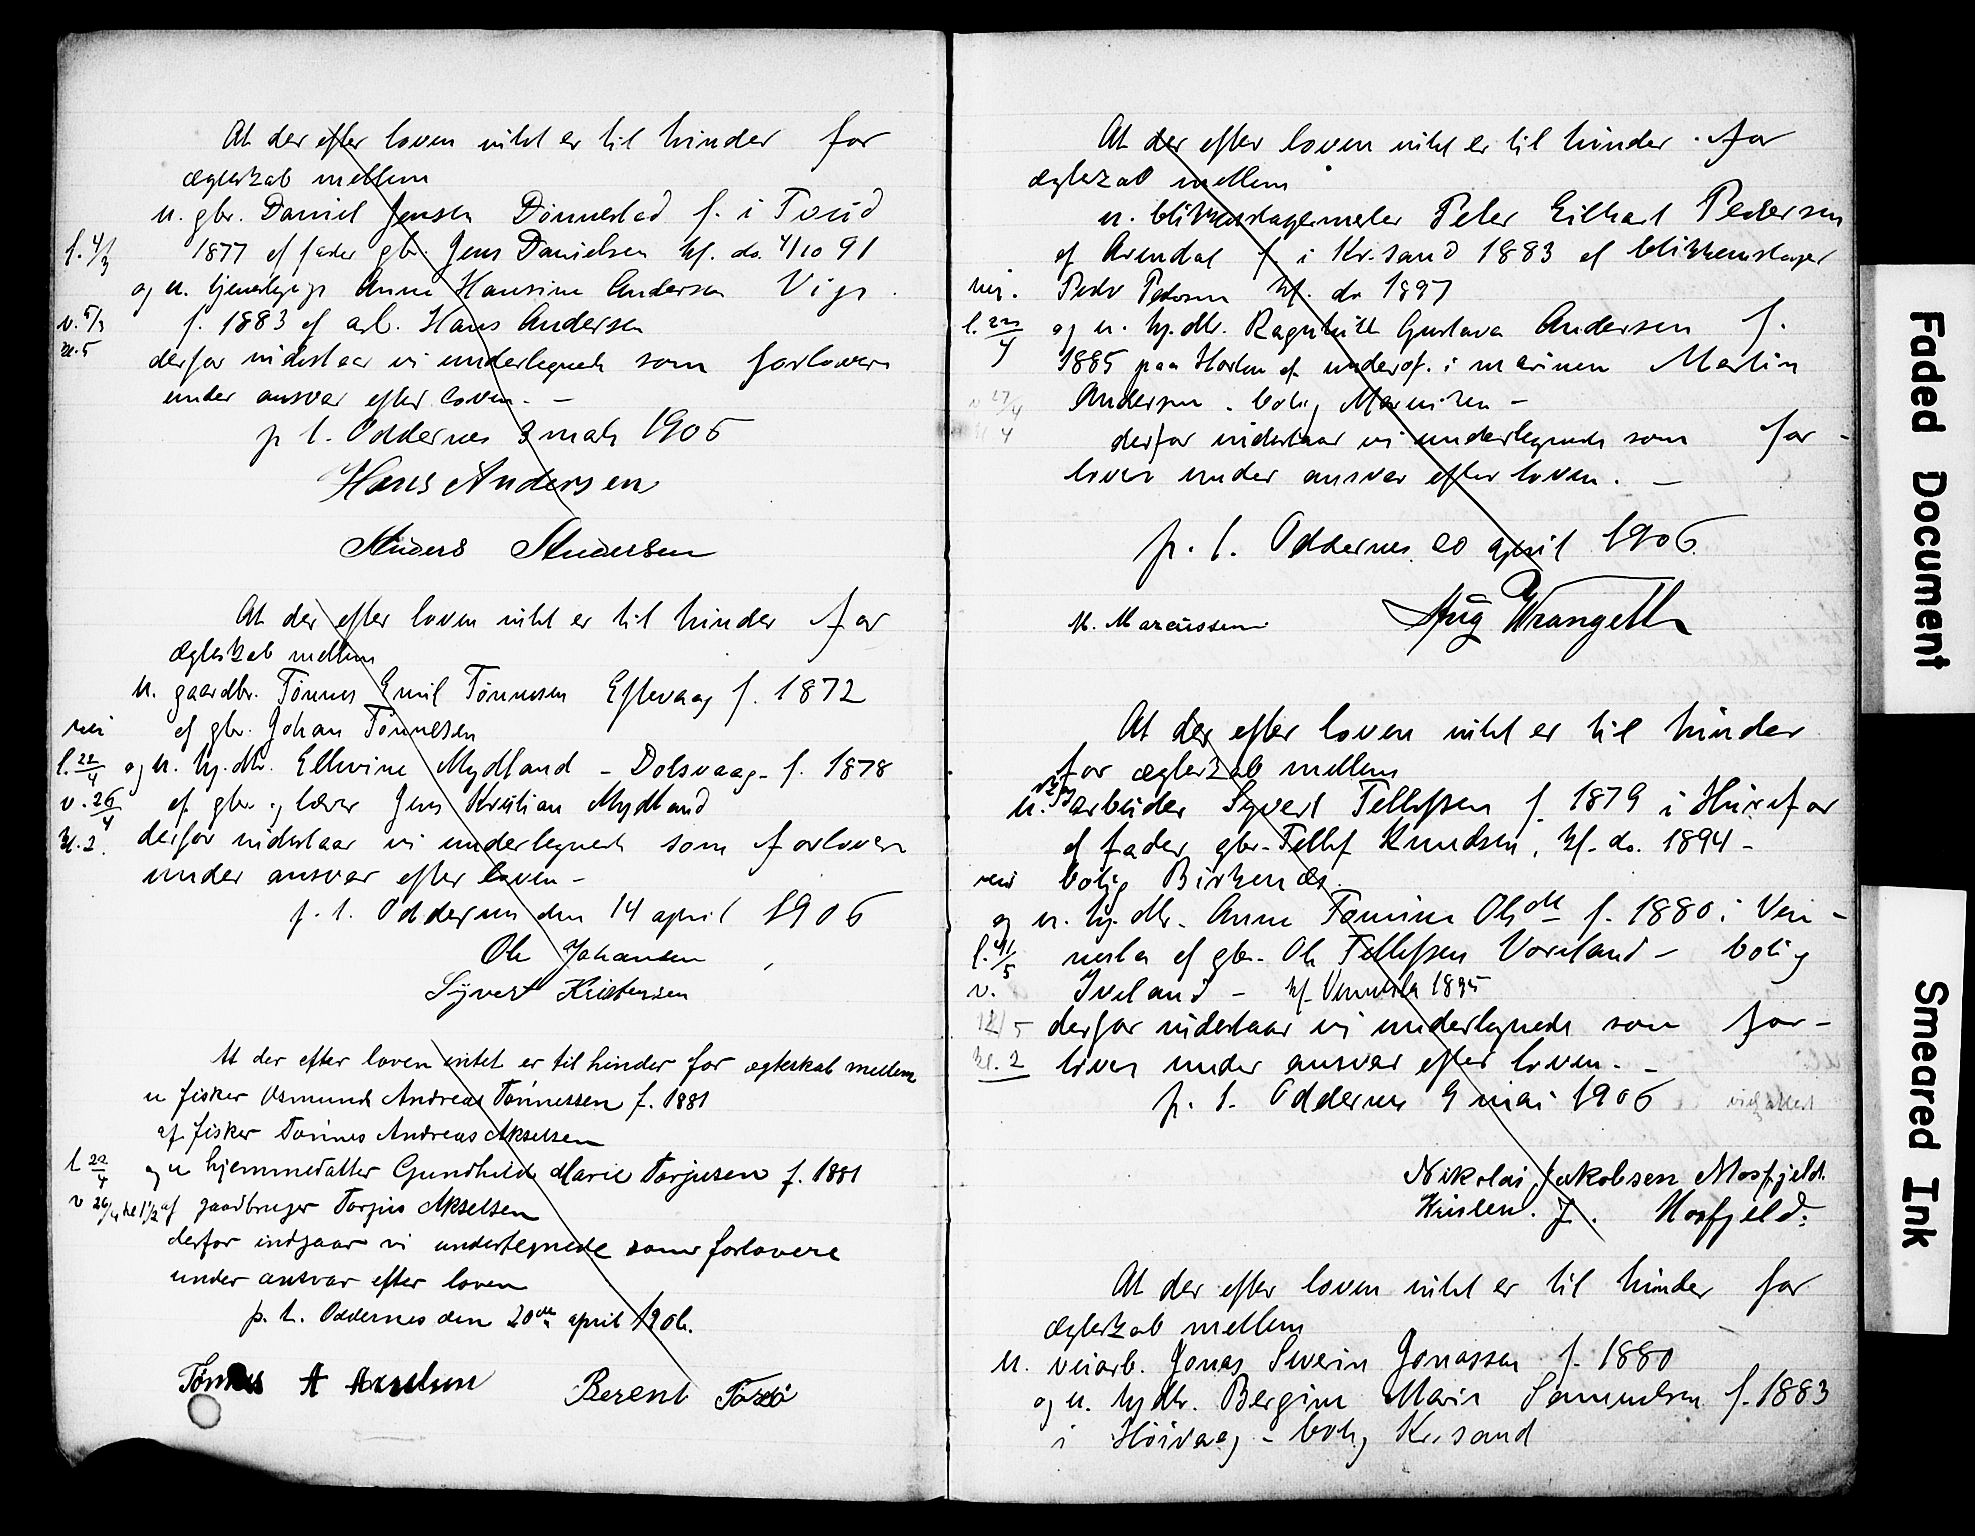 At der efter loven intet er til hinder for
ægteskab mellem
u. gbr. Daniel Jensen Dønnestad f. i Tveid
f. 4/3 1877 af fader gbr. Jens Danielsen kf. do. 4/10 91
og u. tjenestepige Anne Hansine Andersen Vige
v. 5/3 f. 1883 af arb. Hans Andersen
kl. 5 derfor indestaar vi undertegnede som forlovere
under ansvar efter loven. –
p t. Oddernes 3 mars 1906
Hans Andersen
Anders Andersen
At der efter loven intet er til hinder for
ægteskab mellem
u. gaardbr. Tønnes Emil Tønnesen Eftevaag f. 1872
nei af gbr. Johan Tønnesen
l. 22/4 og u. hj.dtr. Ellevine Mydland – Dolsvaag – f. 1878
v. 26/4 af gbr. og lærer Jens Kristian Mydland
kl. 2. derfor indestaar vi undertegnede som forlovere
under ansvar efter loven –
p. t. Oddernes den 14 april 1906
Ole Johansen
Syvert Kristensen
At der efter loven intet er til hinder for ægteskab mellem
u fisker Osmund Andreas Tønnessen f. 1881
af fisker Tønnes Andreas Akselsen
l 22/4 og u hjemmedatter Gundhild Marie Torjusen f. 1881
v 26/4 kl 1 1/2 af gaardbruger Torjus Akselsen
derfor indgaar vi undertegnede som forlovere
under ansvar efter loven
p. t. Oddernes den 20de april 1906.
Tønnes A Axelsen Berent
At der efter loven intet er til hinder for
ægteskab mellem
u. blikkenslagermester Peter Eilhart Pedersen
af Arendal f. i Kr.sand 1883 af blikkenslager
nei. Peder Pedersen kf. do 1897
l. 22/4 og u. hj.dtr. Ragnhild Gustava Andersen f.
1885 paa Horten af underof. i marinen Martin
v 27/4 Andersen . bolig Marviken –
kl 4 derfor indestaar vi undertegnede som for-
lover under ansvar efter loven. –
p. t. Oddernes 20 april 1906
M. Marcussen Aug Wrangell
At der efter loven intet er til hinder
for ægteskab mellem
u. arbeider Syvert Tellefsen f. 1879 i Hurefor
af fader gbr. Tellef Knudsen, kf. do. 1894 –
nei bolig Birkenæs.
og u. hj. dtr. Anne Tomine Olsdtr f. 1880 i Ven-
l. /5 nesla af gbr. Ole Tellefsen Voreland – bolig
v. Iveland – kf. Vennesla 1895
12/5 derfor indestaar vi undertegnede som for-
kl. 2 lover under ansvar efter loven. –
p. t. Oddernes 9 mai 1906
Nikolai Jakobsen Mosfjeld.
Kristen. J. Mosfjeld.
At der efter loven intet er til hinder for
ægteskab mellem
u. veiarb. Jonas Severin Jonassen f. 1880
og u. hjdtr. Bergine Marie Samuelsen f. 1883
i Høivaag – bolig Kr.sand
Faded Document
Smeared Ink